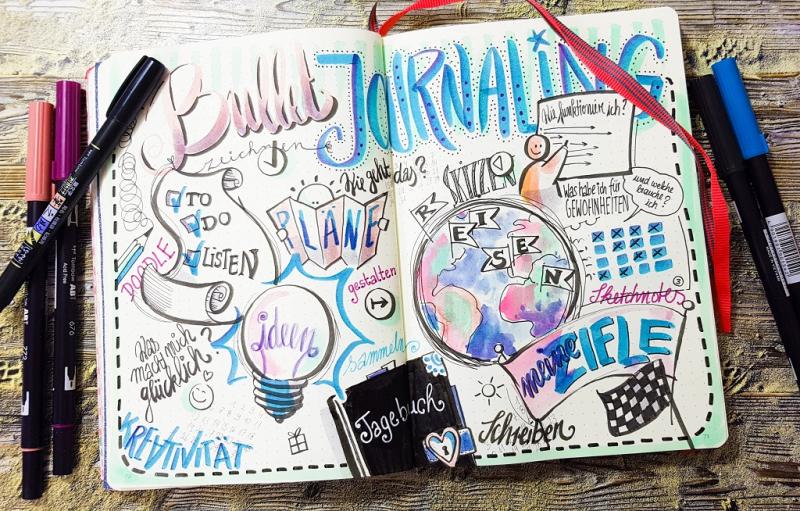 Bullet JOURNALING
zeichnen
1
Wie geht das?
TO
DO
LISTEN
PLÄNE
DOODLE
gestalten
ideen
sammeln
Was
macht mich
glücklich?
KREATIVITÄT
Tagebuch
SKIZZEN
Wie funktioniere ich?
Was habe ich für
GEWOHNHEITEN
und welche
brauche
ich?
REISEN
Sketchnotes
3
meine
ZIELE
Schreiben